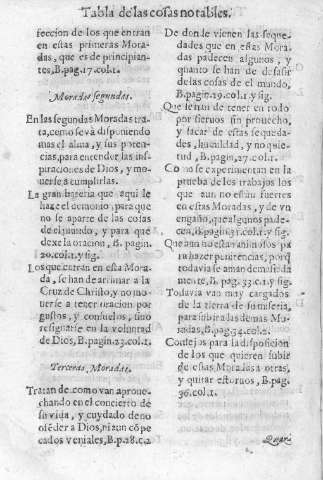 Tabla de las cosas notables.
feccion de los que entran
en estas primeras Mora-
das, que es de principian-
tes, B. pag. 17. col. 1.
Moradas segundas.
En las segundas Moradas tra-
ta, como se và disponiendo
mas el alma, y sus poten-
cias, para entender las ins-
piraciones de Dios, y mo-
uerse à cumplirlas.
La gran bateria que aqui le
haze el demonio, para que
no se aparte de las cosas
del mundo, y para que
dexe la oracion, B. pagin.
20. col. 1. y sig.
Los que entran en esta Mora-
da, se han de arrimar a la
Cruz de Christo, y no mo-
uerse a tener oracion por
gustos, y consuelos, sino
resignarse en la voluntad
de Dios, B. pagin. 23. col. 1.
Terceras Moradas.
Tratan de como van aproue-
chando en el concierto de
su vida, y cuydado de no
ofẽder a Dios, ni aun cõ pe
cados veniales, B. p. 28. c. 2
De donde vienen las seque-
dades que en estas Mora-
das padecen algunos, y
quanto se han de desasir
de las cosas de el mundo,
B. pagin. 29. col. 1. y sig.
Que se han de tener en todo
por sieruos sin prouecho,
y sacar de estas sequeda-
des, humildad, y no quie-
tud, B. pagin. 27. col. 1.
Como se experimentan en la
prueba de los trabajos los
que aun no estan fuertes
en estas Moradas, y de vn
engaño, que algunos pade-
cen, B. pagin. 31. col. 1. y sig.
Que aun no estan animosos pa
ra hazer penitencias, porq̃
todavia se aman demasiada
mente, B. pag. 33. c. 1. y sig
Todavia van muy cargados
de la tierra de su miseria,
para subir a las demas Mo-
radas, B. pag. 34. col. 2.
Consejos para la disposicion
de los que quieren subir
de estas Moradas a otras,
y quitar estoruos, B. pag.
36. col. 1.
Quar-